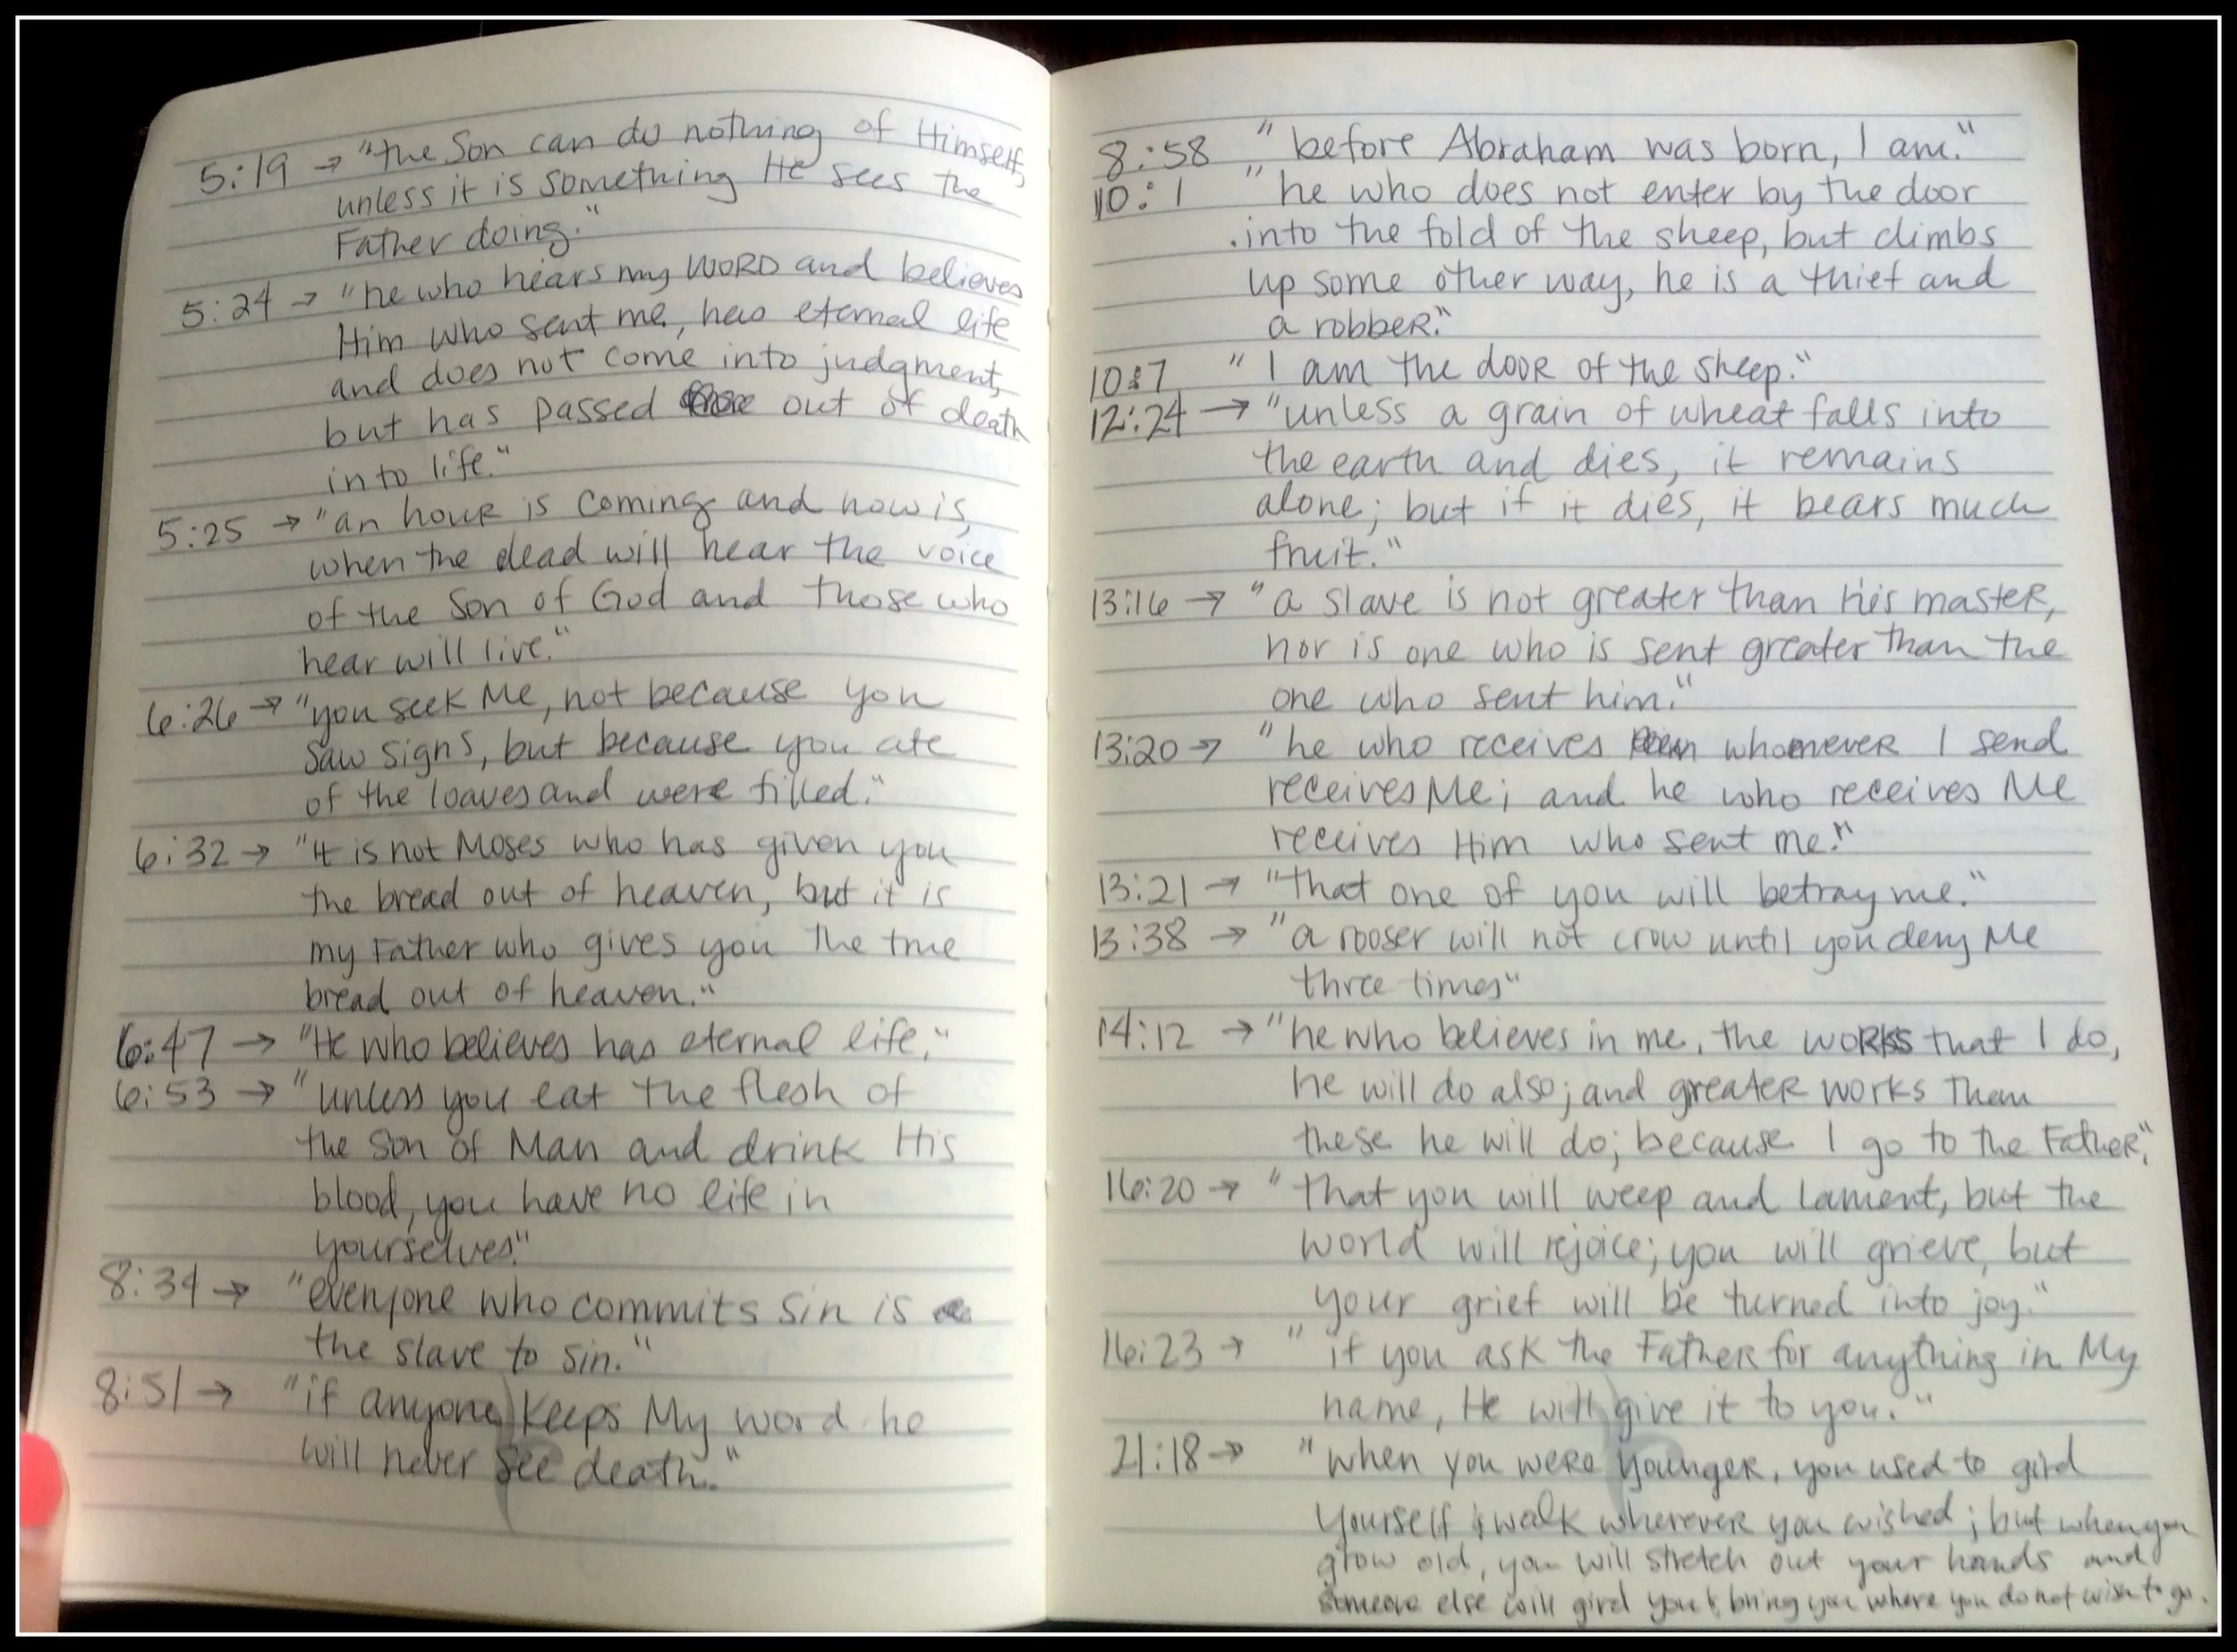 5:19 → "the Son can do nothing of Himself,
unless it is something He sees the
Father doing."
5:24 → "he who hears my WORD and believes
Him who sent me, has eternal life
and does not come into judgment,
but has passed out of death
into life."
5:25 → "an hour is coming and now is,
when the dead will hear the voice
of the Son of God and those who
hear will live."
6:26 → "you seek Me, not because you
saw signs, but because you ate
of the loaves and were filled."
6:32 → "It is not Moses who has given you
the bread out of heaven, but it is
my Father who gives you the true
bread out of heaven."
6:47 → "He who believes has eternal life."
6:53 → "unless you eat the flesh of
the Son of Man and drink His
blood, you have no life in
yourselves."
8:34 → "everyone who commits sin is
the slave to sin."
8:51 → "if anyone keeps My word he
will never see death."
8:58 "before Abraham was born, I am."
10:1 "he who does not enter by the door
into the fold of the sheep, but climbs
up some other way, he is a thief and
a robber."
10:7 "I am the door of the sheep."
12:24 → "unless a grain of wheat falls into
the earth and dies, it remains
alone; but if it dies, it bears much
fruit."
13:16 → "a slave is not greater than his master,
nor is one who is sent greater than the
one who sent him."
13:20 → "he who receives whomever I send
receives Me; and he who receives Me
receives Him who sent me."
13:21 → "that one of you will betray me."
13:38 → "a rooser will not crow until you deny Me
three times"
14:12 → "he who believes in me, the works that I do,
he will do also; and greater works than
these he will do; because I go to the Father."
16:20 → "that you will weep and lament, but the
world will rejoice; you will grieve, but
your grief will be turned into joy."
16:23 → "if you ask the Father for anything in My
name, He will give it to you."
21:18 → "when you were younger, you used to gird
yourself & walk wherever you wished; but when you
grow old, you will stretch out your hands and
someone else will gird you & bring you where you do not wish to go.